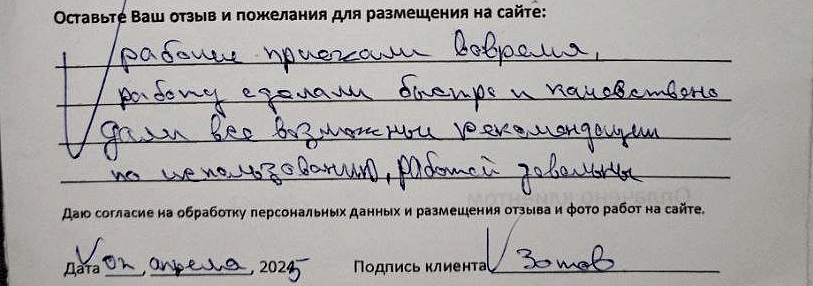 Оставьте Ваш отзыв и пожелания для размещения на сайте:
рабочие приехали вовремя,
работу сделали быстро и качествено
дали все возможные рекомендации
по использованию, работой довольны
Даю согласие на обработку персональных данных и размещения отзыва и фото работ на сайте.
Дата апреля, 2025 Подпись клиента Зотов